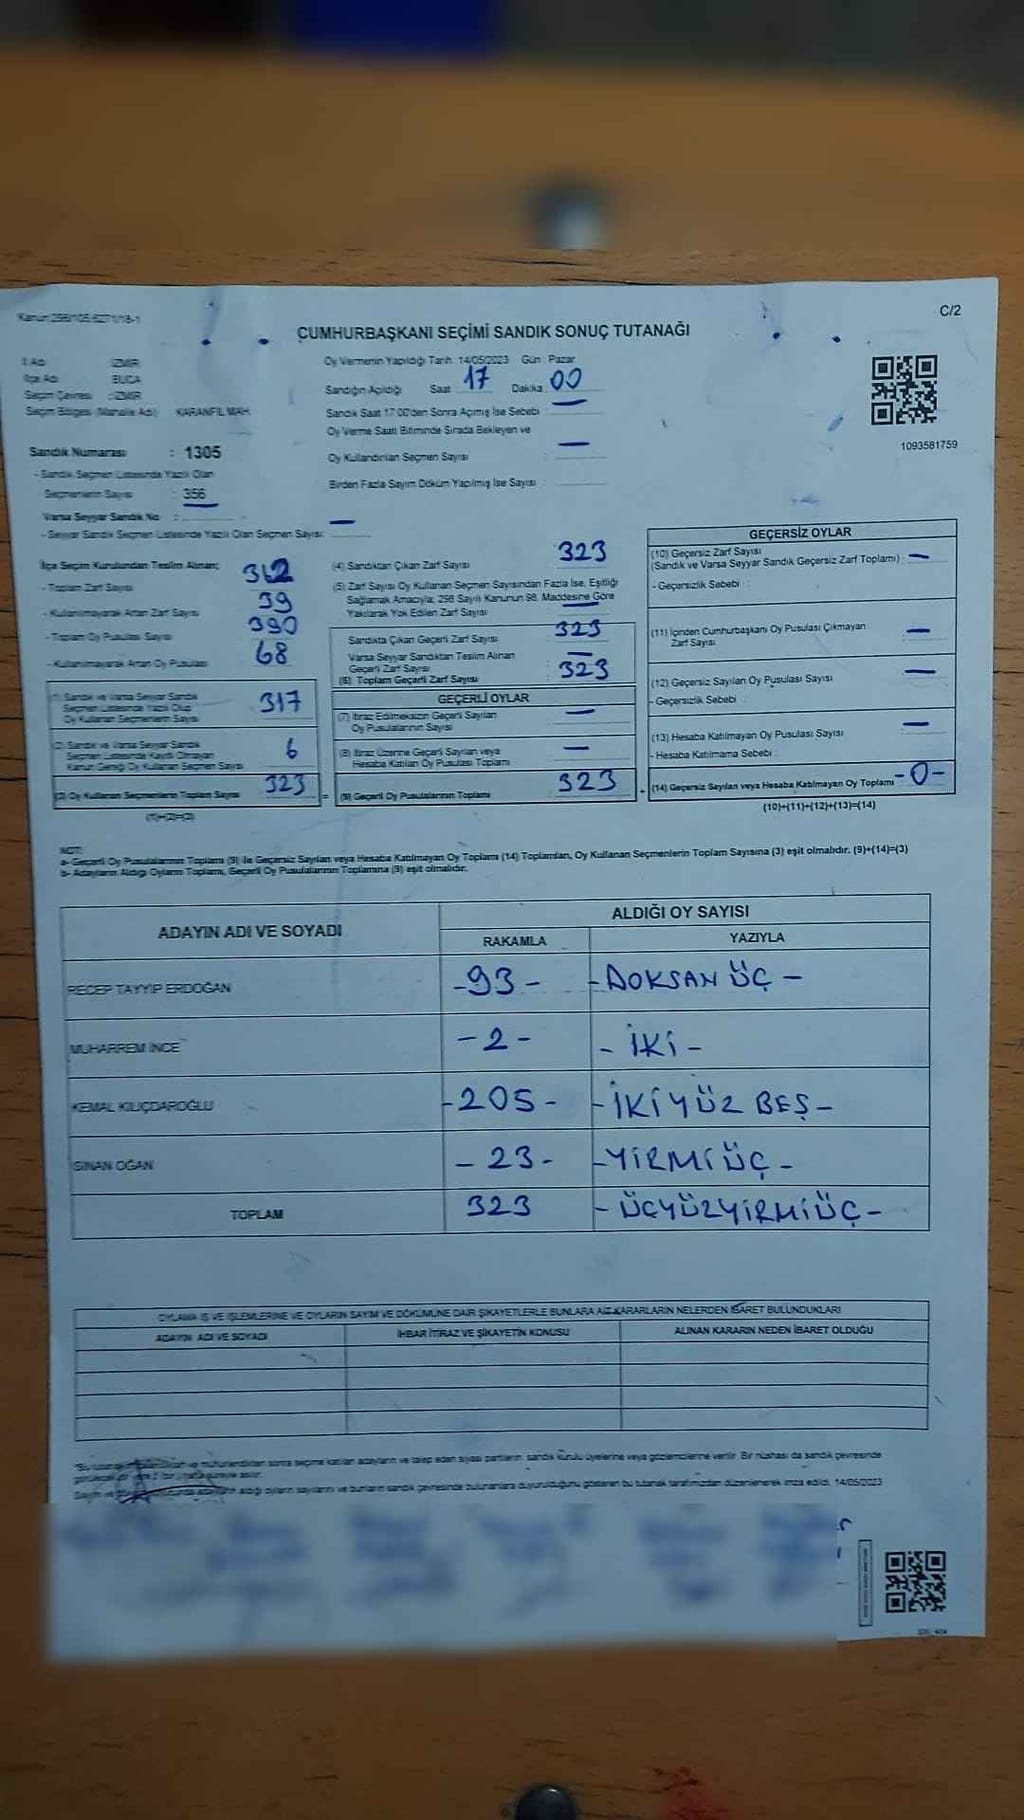 Kanun:298/105,6271/18-1
C/2
CUMHURBAŞKANI SEÇİMİ SANDIK SONUÇ TUTANAĞI
İl Adı : İZMİR
İlçe Adı : BUCA
Seçim Çevresi : İZMİR
Seçim Bölgesi (Mahalle Adı) : KARANFİL MAH.
Oy Vermenin Yapıldığı Tarih : 14/05/2023 Gün : Pazar
Sandığın Açıldığı Saat 17 Dakika 00
Sandık Saat 17:00'den Sonra Açılmış İse Sebebi : —
Oy Verme Saati Bitiminde Sırada Bekleyen ve
Oy Kullandırılan Seçmen Sayısı : —
Birden Fazla Sayım Döküm Yapılmış İse Sayısı :
1093581759
Sandık Numarası : 1305
- Sandık Seçmen Listesinde Yazılı Olan
Seçmenlerin Sayısı : 356
Varsa Seyyar Sandık No : —
- Seyyar Sandık Seçmen Listesinde Yazılı Olan Seçmen Sayısı: —
İlçe Seçim Kurulundan Teslim Alınan;
- Toplam Zarf Sayısı
- Kullanılmayarak Artan Zarf Sayısı 39
- Toplam Oy Pusulası Sayısı 390
- Kullanılmayarak Artan Oy Pusulası 68
(1) Sandık ve Varsa Seyyar Sandık
Seçmen Listesinde Yazılı Olup
Oy Kullanan Seçmenlerin Sayısı 317
(2) Sandık ve Varsa Seyyar Sandık
Seçmen Listesinde Kaydı Olmayan
Kanun Gereği Oy Kullanan Seçmen Sayısı 6
(3) Oy Kullanan Seçmenlerin Toplam Sayısı 323
(1)+(2)=(3)
(4) Sandıktan Çıkan Zarf Sayısı 323
(5) Zarf Sayısı Oy Kullanan Seçmen Sayısından Fazla İse, Eşitliği
Sağlamak Amacıyla; 298 Sayılı Kanunun 98. Maddesine Göre
Yakılarak Yok Edilen Zarf Sayısı —
Sandıkta Çıkan Geçerli Zarf Sayısı : 323
Varsa Seyyar Sandıktan Teslim Alınan
Geçerli Zarf Sayısı —
(6) Toplam Geçerli Zarf Sayısı : 323
GEÇERLİ OYLAR
(7) İtiraz Edilmeksizin Geçerli Sayılan
Oy Pusulalarının Sayısı —
(8) İtiraz Üzerine Geçerli Sayılan veya
Hesaba Katılan Oy Pusulası Toplamı —
= (9) Geçerli Oy Pusulalarının Toplamı 323
GEÇERSİZ OYLAR
(10) Geçersiz Zarf Sayısı
(Sandık ve Varsa Seyyar Sandık Geçersiz Zarf Toplamı) : —
- Geçersizlik Sebebi :
(11) İçinden Cumhurbaşkanı Oy Pusulası Çıkmayan
Zarf Sayısı —
(12) Geçersiz Sayılan Oy Pusulası Sayısı : —
- Geçersizlik Sebebi :
(13) Hesaba Katılmayan Oy Pusulası Sayısı : —
- Hesaba Katılmama Sebebi :
+ (14) Geçersiz Sayılan veya Hesaba Katılmayan Oy Toplamı -0-
(10)+(11)+(12)+(13)=(14)
NOT:
a- Geçerli Oy Pusulalarının Toplamı (9) ile Geçersiz Sayılan veya Hesaba Katılmayan Oy Toplamı (14) Toplamları, Oy Kullanan Seçmenlerin Toplam Sayısına (3) eşit olmalıdır. (9)+(14)=(3)
b- Adayların Aldığı Oyların Toplamı, Geçerli Oy Pusulalarının Toplamına (9) eşit olmalıdır.
ADAYIN ADI VE SOYADI
ALDIĞI OY SAYISI
RAKAMLA YAZIYLA
RECEP TAYYİP ERDOĞAN -93- -DOKSAN ÜÇ-
MUHARREM İNCE -2- -İKİ-
KEMAL KILIÇDAROĞLU -205- -İKİYÜZ BEŞ-
SİNAN OĞAN -23- -YİRMİÜÇ-
TOPLAM 323 -ÜÇYÜZYİRMİÜÇ-
OYLAMA İŞ VE İŞLEMLERİNE VE OYLARIN SAYIM VE DÖKÜMÜNE DAİR ŞİKAYETLERLE BUNLARA AİT KARARLARIN NELERDEN İBARET BULUNDUKLARI
ADAYIN ADI VE SOYADI İHBAR İTİRAZ VE ŞİKAYETİN KONUSU ALINAN KARARIN NEDEN İBARET OLDUĞU
mühürlendikten sonra seçime katılan adayların ve talep eden siyasi partilerin sandık kurulu üyelerine veya gözlemcilerine verilir. Bir nüshası da sandık çevresinde
adayların aldığı oyların sayılarını ve bunların sandık çevresinde bulunanlara duyurulduğunu gösteren bu tutanak tarafımızdan düzenlenerek imza edildi. 14/05/2023